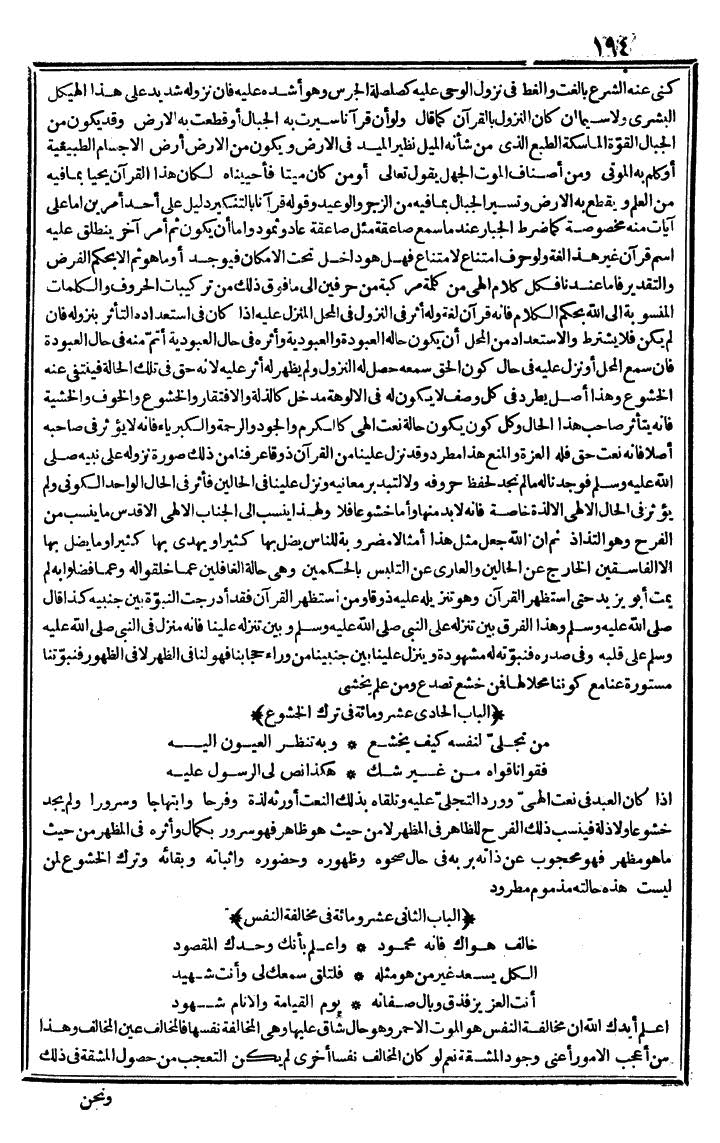 ١٩٤
كنى عنه الشرع بالغت والغط فى نزول الوحى عليه كصلصلة الجرس وهو أشده عليه فان نزوله شديد على هذا الهيكل
البشرى ولاسيما ان كان النزول بالقرآن كما قال ولو أن قرآنا سيرت به الجبال أو قطعت به الارض وقد يكون من
الجبال القوّة الماسكة الطبع الذى من شأنه الميل نظير الميد فى الارض ويكون من الارض أرض الاجسام الطبيعية
أو كلم به الموتى ومن أصناف الموت الجهل يقول تعالى أو من كان ميتا فأحييناه لكان هذا القرآن يحيا بما فيه
من العلم ويقطع به الارض وتسير الجبال بما فيه من الزجر والوعيد وقوله قرآنا بالتنكير دليل على أحد أمرين اما على
آيات منه مخصوصة كما ضرط الجبار عند ما سمع صاعقة مثل صاعقة عاد وثمود واما أن يكون ثم أمر آخر ينطلق عليه
اسم قرآن غير هذا لغة ولو حرف امتناع لامتناع فهل هو داخل تحت الامكان فيوجد أو ما هو ثم الا بحكم الفرض
والتقدير فاما عندنا فكل كلام الهى من كلمة مركبة من حرفين الى ما فوق ذلك من تركيبات الحروف والكلمات
المنسوبة الى الله بحكم الكلام فانه قرآن لغة وله أثر فى النزول فى المحل المنزل عليه اذا كان فى استعداده التأثر بنزوله فان
لم يكن فلا يشترط والاستعداد من المحل أن يكون حاله العبودة والعبودية وأثره فى حال العبودية أتمّ منه فى حال العبودة
فان سمع المحل أو نزل عليه فى حال كون الحق سمعه حصل له النزول ولم يظهر له أثر عليه لانه حق فى تلك الحالة فينتفى عنه
الخشوع وهذا أصل يطرد فى كل وصف لا يكون له فى الالوهة مدخل كالذلة والافتقار والخشوع والخوف والخشية
فانه يتأثر صاحب هذا الحال وكل كون يكون حالة نعت الهى كالكرم والجود والرحمة والكبرياء فانه لا يؤثر فى صاحبه
أصلا فانه نعت حق فله العزة والمنع هذا مطرد وقد نزل علينا من القرآن ذوقا عرفنا من ذلك صورة نزوله على نبيه صلى
الله عليه وسلم فوجدنا له ما لم نجد لحفظ حروفه ولا لتدبر معانيه ونزل علينا فى الحالين فأثر فى الحال الواحد الكونى ولم
يؤثر فى الحال الالهى الا لذة خاصة فانه لا بد منها وأما خشوعا فلا ولهذا ينسب الى الجناب الالهى الاقدس ما ينسب من
الفرح وهو التذاذ ثم ان الله جعل مثل هذا أمثالا مضروبة للناس يضل بها كثيرا ويهدى بها كثيرا وما يضل بها
الا الفاسقين الخارج عن الحالين والعارى عن التلبس بالحكمين وهى حالة الغافلين عما خلقوا له وعما فضلوا به لم
يمت أبو يزيد حتى استظهر القرآن وهو تنزيله عليه ذوقا ومن استظهر القرآن فقد أدرجت النبوّة بين جنبيه كذا قال
صلى الله عليه وسلم وهذا الفرق بين تنزله على النبى صلى الله عليه وسلم وبين تنزله علينا فانه منزل فى النبى صلى الله عليه
وسلم على قلبه وفى صدره فنبوّته له مشهودة وينزل علينا بين جنبينا من وراء حجابنا فهو لنا فى الظهر لا فى الظهور فنبوّتنا
مستورة عنا مع كوننا محلا لها فن خشع تصدع ومن علم يخشى
﴿الباب الحادى عشر ومائة فى ترك الخشوع﴾
من تجلىّ لنفسه كيف يخشع * وبه تنظر العيون اليه
فقوانا قواه من غير شك * هكذا نص لى الرسول عليه
اذا كان العبد فى نعت الهىّ وورد التجلى عليه وتلقاه بذلك النعت أورثه لذة وفرحا وابتهاجا وسرورا ولم يجد
خشوعا ولا ذلة فينسب ذلك الفرح للظاهر فى المظهر لا من حيث هو ظاهر فهو سرور بكمال وأثره فى المظهر من حيث
ما هو مظهر فهو محجوب عن ذاته بربه فى حال صحوه وظهوره وحضوره واثباته وبقائه وترك الخشوع لمن
ليست هذه حالته مذموم مطرود
﴿الباب الثانى عشر ومائة فى مخالفة النفس﴾
خالف هواك فانه محمود * واعلم بأنك وحدك المقصود
الكل يسعد غير من هو مثله * فلتلق سمعك لى وأنت شهيد
أنت العزيز فذق وبال صفاته * يوم القيامة والانام شهود
اعلم أيدك الله ان مخالفة النفس هو الموت الاحمر وهو حال شاق عليها وهى المخالفة نفسها فالمخالف عين المخالف وهذا
من أعجب الامور أعنى وجود المشقة نعم لو كان المخالف نفسا أخرى لم يكن التعجب من حصول المشقة فى ذلك
ونحن